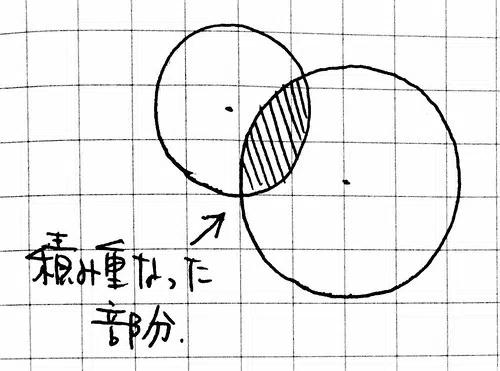 積み重なった
部分.